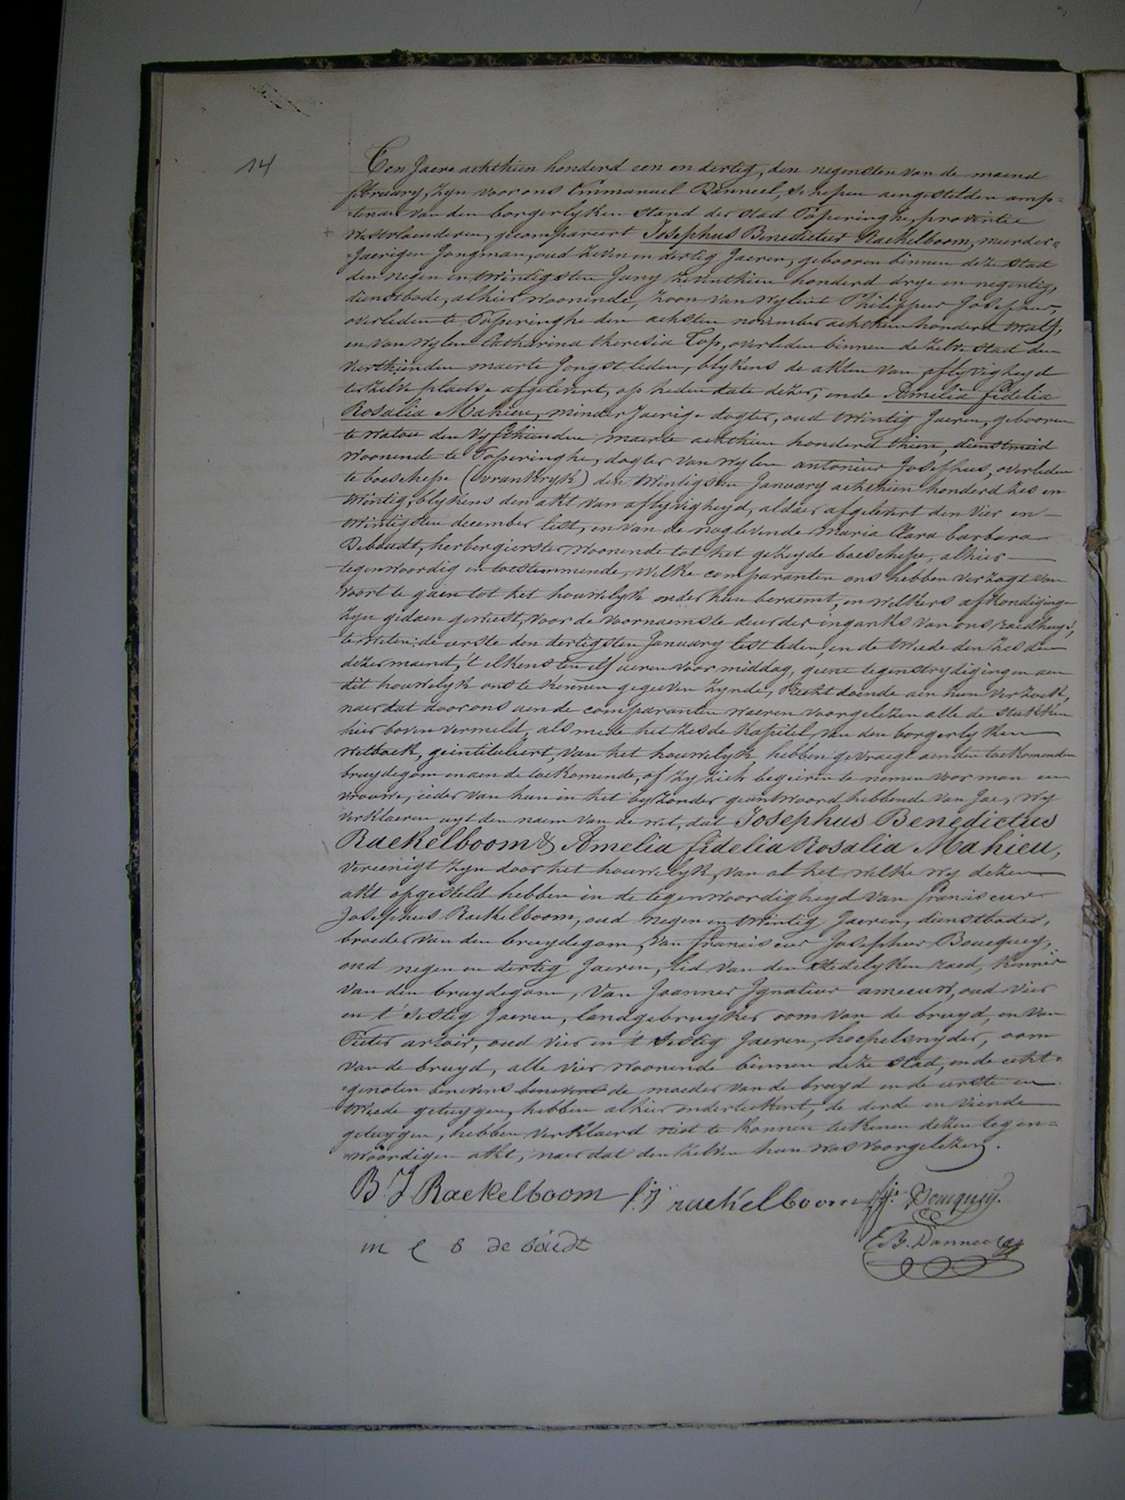 14
Ten Jaere achthien honderd een en dertig, den negensten van de maend
february, zyn voor ons Emmanuel Danneel, Schepen aengestelden amp=
tenaer van den borgerlyken Stand der Stad Poperinghe, provintie
Westvlaenderen, gecompareert Josephus Benedictus Raekelboom, meerder=
=jaerigen jongman, oud zeven en dertig Jaeren, gebooren binnen deze Stad
den negen en twintigsten Juny zeventhien honderd drye en negentig,
dienstbode, alhier woonende, zoon van wylent Philippus Josephus,
overleden te Poperinghe den achsten november achthien honderd twalf,
en van wylen Catharina Theresia Top, overleden binnen de zelve stad den
veerthienden maerte Jongst leden, blykens de akten van aflyvigheyd
ter zelve plaetse afgelevert, op heden date dezer, ende Amelia fidelia
Rosalia Mahieu, minder Jaerige dogter, oud twintig Jaeren, gebooren
te watou den vyfthienden maerte achthien honderd thien, dienstmeid
woonende te Poperinghe, dogter van wylen antonius Josephus, overleden
te boeschepe (Vrankryk) den twintigsten January achthien honderd zes en
twintig, blykens den akt van aflyvigheyd, aldaer afgelevert den vier en
twintigsten december lest, en van de nog levende maria Clara barbara
Deboudt, herbergierster, woonende tot het gezeyde boeschepe, alhier
tegenwoordig en toestemmende, welke comparanten ons hebben verzogt van
voort te gaen tot het houwelyk onder hun beraemt, en welkers afkondiging=
zyn gedaen geweest, voor de voornaemste deur der ingank van ons raedhuys,
te weten: de eerste den dertigsten January lest leden, en de twede den zesden
dezer maend, 't elkens ten elf ueren voor middag, geene tegenstrydigingen aen
dit houwelyk ons te kennen gegeven zynde, Recht doende aen hun verzoek,
naer dat door ons aen de comparanten waeren voorgelezen alle de stukken
hier boven vermeld, als mede het zesde kapitel van den borgerlyken
wetboek, geintituleert, van het houwelyk hebben gevraegt aen den toekomenden
bruydegom en aen de toekomende, of zy zich begeiren te nemen voor man en
vrouwe, ieder van hun in het byzonder geantwoord hebbende van Jae, wy
verklaeren uyt den naem van de wet, dat Josephus Benedictus
Raekelboom & Amelia fidelia Rosalia Mahieu,
vereenigt zyn door het houwelyk, van al het welke wy dezen
akt opgesteld hebben in de tegenwoordigheyd van franciscus
Josephus Raekelboom, oud negen en twintig Jaeren, dienstbode,
broeder van den bruydegom, van franciscus Josephus Boucquey,
oud negen en dertig Jaeren, Lid van den Stedelyken raed, kennis
van den bruydegom, van Joannes Ignatius ameeuw, oud vier
en 't Sestig Jaeren, landgebruyker oom van de bruyd, en van
Pieter arloir, oud vier en 't Sestig Jaeren, hoepelsnyder, oom
van de bruyd, alle vier woonende binnen deze stad, en de echt=
=genoten benevens benevens de moeder van de bruyd en de eerste en
twede getuygen, hebben alhier onderteekent, de derde en vierde
getuygen, hebben verklaerd niet te konnen teekenen dezen tegen=
=woordigen akt, naer dat den zelven hun was voorgelezen.
B J Raekelboom f.j raekelboom fj. Boucquey.
m C b de bàudt E. B. Danneel